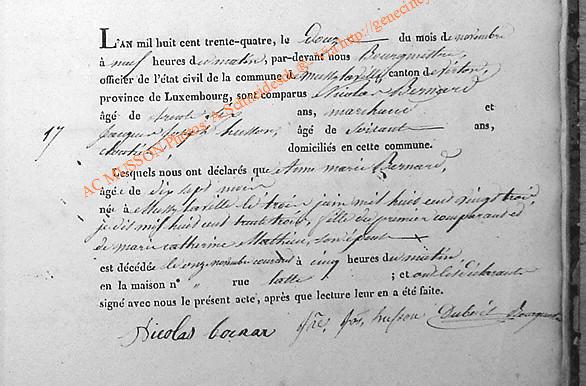 L'AN mil huit cent trente-quatre, le Douze du mois de novembre
à neuf heures du matin, par-devant nous Bourgmestre,
officier de l'état civil de la commune de Mussy-la-ville canton de Virton,
province de Luxembourg, sont comparus Nicolas Bernard
âgé de trente ans, marchand et
Jacques Joseph husson, âgé de Soixante ans,
17
domiciliés en cette commune.
Lesquels nous ont déclarés que Anne marie Bernard,
âgée de dix sept mois
née à Mussy la ville le trois juin mil huit cent vingt trois,
je dis mil huit cent trente trois, fille du premier comparant et
de marie catherine Mathieu, son épouse
est décédée le onze novembre courant à cinq heures du matin
en la maison n° " rue ; et ont les déclarants
signé avec nous le présent acte, après que lecture leur en a été faite.
Nicolas jos husson
AC MUSSON Photos A. Schneidesch - Via http://geneciney